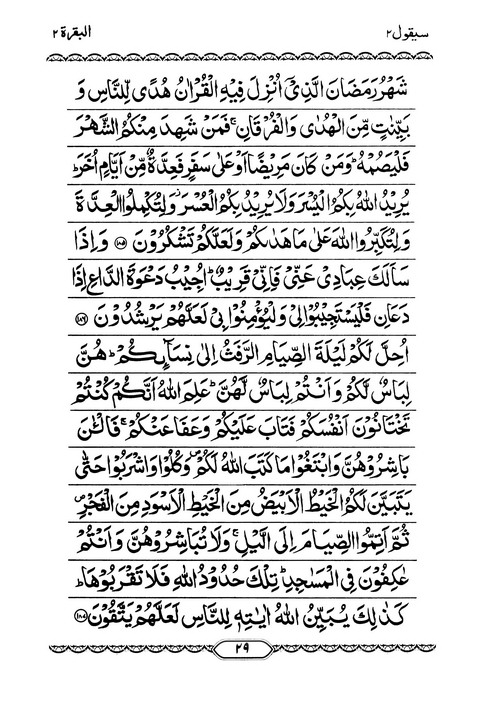 سيقول ٢
البقرة ٢
شَهْرُ رَمَضَانَ الَّذِىْٓ اُنْزِلَ فِيْهِ الْقُرْاٰنُ هُدًى لِّلنَّاسِ وَ
بَيِّنٰتٍ مِّنَ الْهُدٰى وَالْفُرْقَانِ ۚ فَمَنْ شَهِدَ مِنْكُمُ الشَّهْرَ
فَلْيَصُمْهُ ؕ وَمَنْ كَانَ مَرِيْضًا اَوْ عَلٰى سَفَرٍ فَعِدَّةٌ مِّنْ اَيَّامٍ اُخَرَ ؕ
يُرِيْدُ اللّٰهُ بِكُمُ الْيُسْرَ وَلَا يُرِيْدُ بِكُمُ الْعُسْرَ ۫ وَلِتُكْمِلُوا الْعِدَّةَ
وَلِتُكَبِّرُوا اللّٰهَ عَلٰى مَا هَدٰٮكُمْ وَلَعَلَّكُمْ تَشْكُرُوْنَ ﴿١٨٥﴾ وَاِذَا
سَاَلَكَ عِبَادِىْ عَنِّىْ فَاِنِّىْ قَرِيْبٌ ؕ اُجِيْبُ دَعْوَةَ الدَّاعِ اِذَا
دَعَانِ فَلْيَسْتَجِيْبُوْا لِىْ وَلْيُؤْمِنُوْا بِىْ لَعَلَّهُمْ يَرْشُدُوْنَ ﴿١٨٦﴾
اُحِلَّ لَكُمْ لَيْلَةَ الصِّيَامِ الرَّفَثُ اِلٰى نِسَآٮِٕكُمْ ؕ هُنَّ
لِبَاسٌ لَّكُمْ وَاَنْتُمْ لِبَاسٌ لَّهُنَّ ؕ عَلِمَ اللّٰهُ اَنَّكُمْ كُنْتُمْ
تَخْتَانُوْنَ اَنْفُسَكُمْ فَتَابَ عَلَيْكُمْ وَعَفَا عَنْكُمْ ۚ فَالْـٰٔنَ
بَاشِرُوْهُنَّ وَابْتَغُوْا مَا كَتَبَ اللّٰهُ لَكُمْ ۪ وَكُلُوْا وَاشْرَبُوْا حَتّٰى
يَتَبَيَّنَ لَكُمُ الْخَيْطُ الْاَبْيَضُ مِنَ الْخَيْطِ الْاَسْوَدِ مِنَ الْفَجْرِ ۪
ثُمَّ اَتِمُّوا الصِّيَامَ اِلَى الَّيْلِ ۚ وَلَا تُبَاشِرُوْهُنَّ وَاَنْتُمْ
عٰكِفُوْنَ فِى الْمَسٰجِدِ ؕ تِلْكَ حُدُوْدُ اللّٰهِ فَلَا تَقْرَبُوْهَا ؕ
كَذٰلِكَ يُبَيِّنُ اللّٰهُ اٰيٰتِهٖ لِلنَّاسِ لَعَلَّهُمْ يَتَّقُوْنَ ﴿١٨٧﴾
٢٩